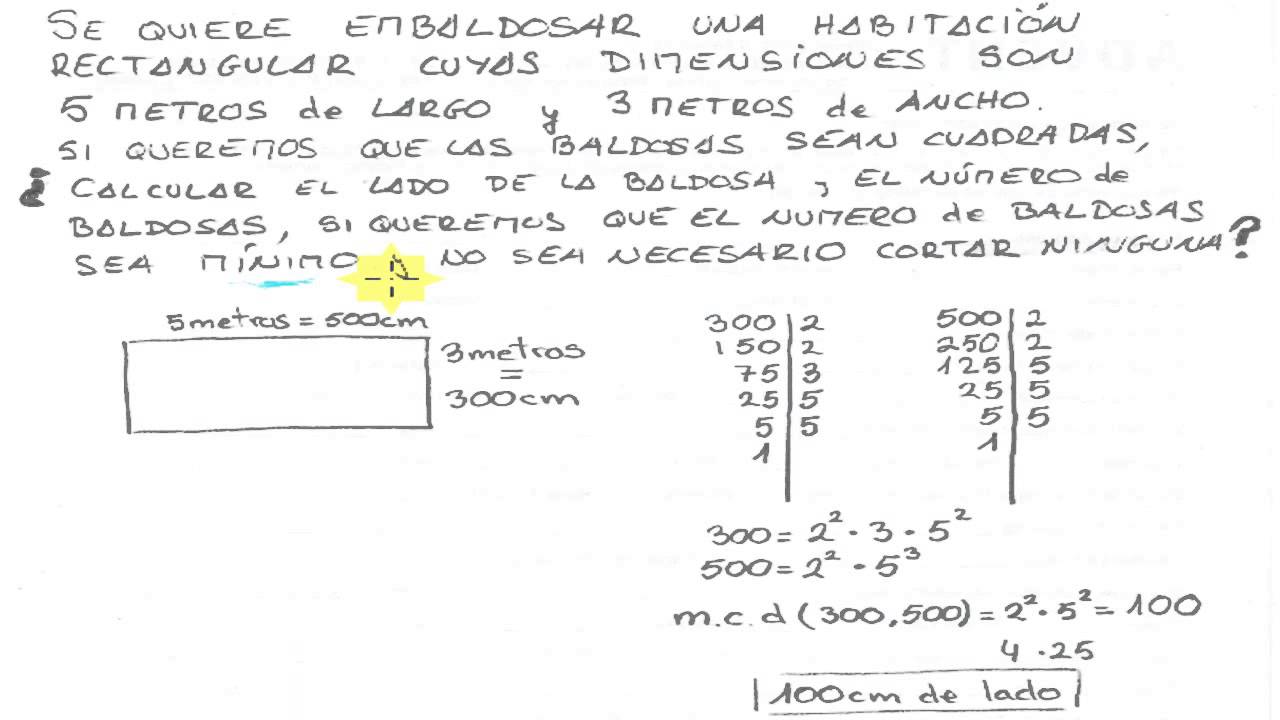 SE QUIERE EMBALDOSAR UNA HABITACIÓN
RECTANGULAR CUYAS DIMENSIONES SON
5 METROS de LARGO y 3 METROS de ANCHO.
SI QUEREMOS QUE LAS BALDOSAS SEAN CUADRADAS,
¿ CALCULAR EL LADO DE LA BALDOSA y EL NÚMERO de
BALDOSAS, SI QUEREMOS QUE EL NUMERO de BALDOSAS
SEA MÍNIMO NO SEA NECESARIO CORTAR NINGUNA?
5 metros = 500cm
3 metros
=
300cm
300 | 2
150 | 2
75 | 3
25 | 5
5 | 5
1
500 | 2
250 | 2
125 | 5
25 | 5
5 | 5
1
300 = 2² · 3 · 5²
500 = 2² · 5³
m.c.d (300,500) = 2² · 5² = 100
4 · 25
100cm de lado